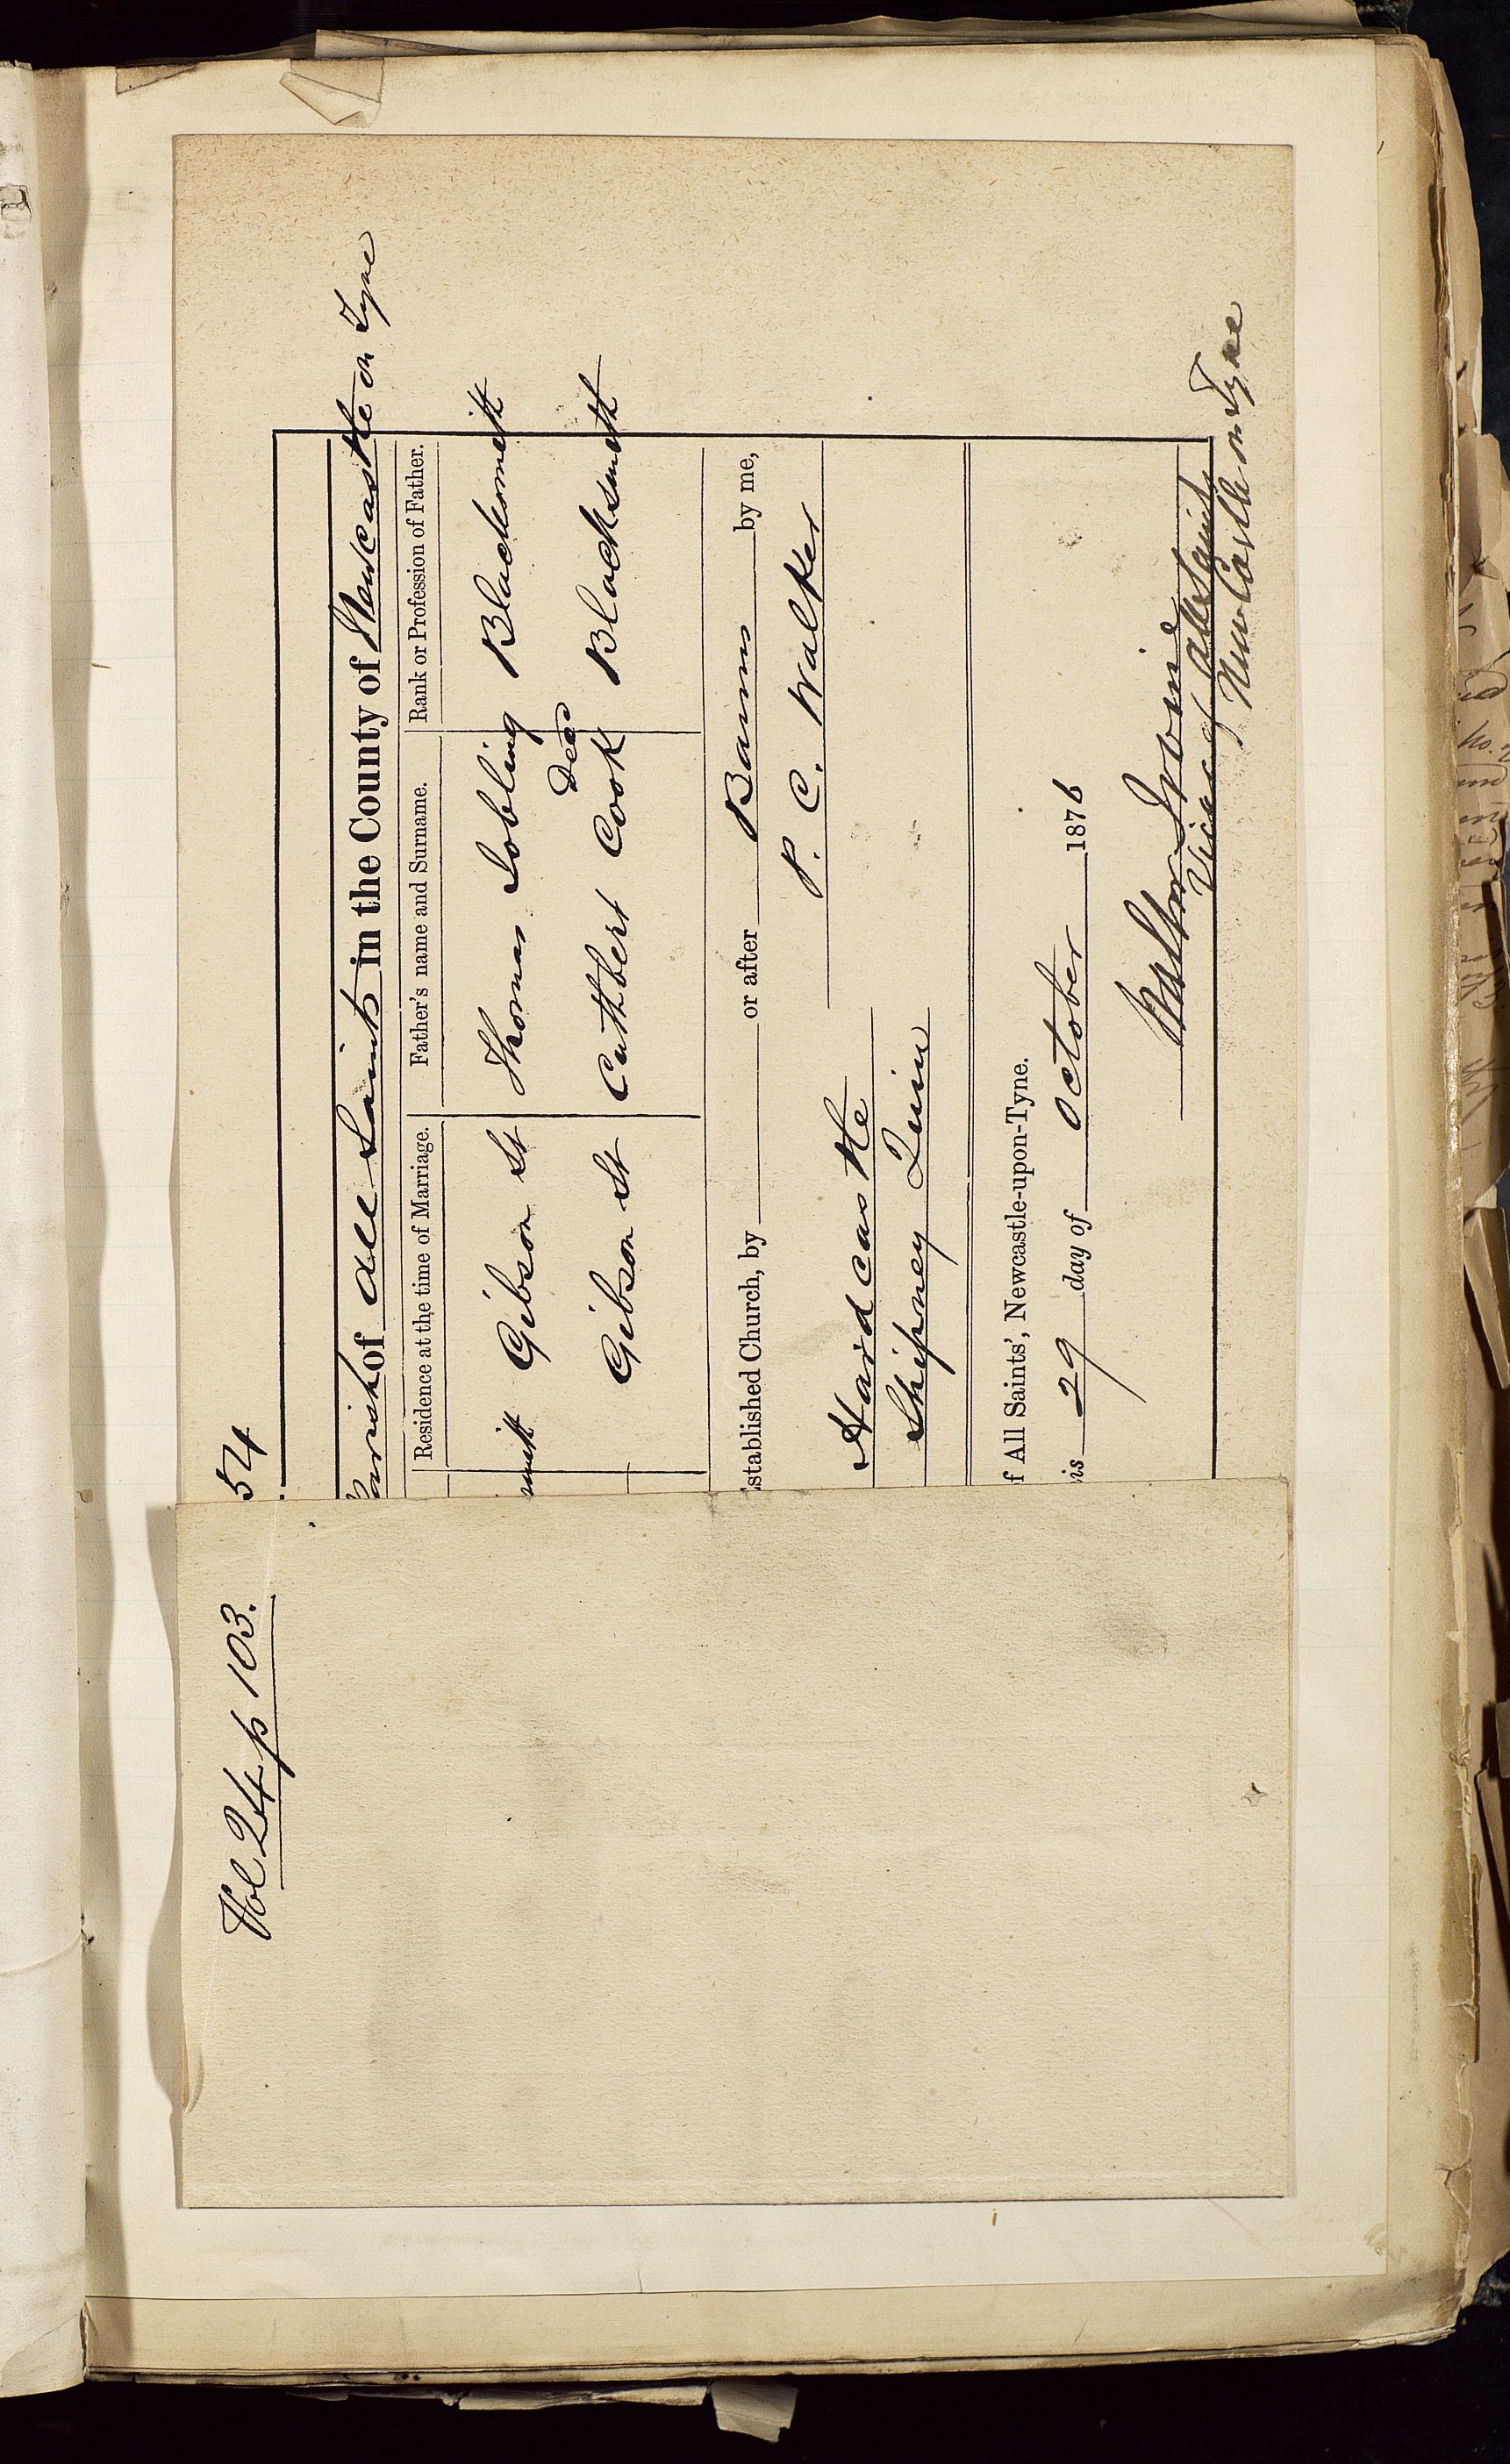 Vol 24 p 103.
54
Parish of All Saints in the County of Newcastle on Tyne
Residence at the time of Marriage. Father's name and Surname. Rank or Profession of Father.
Gibson St Thomas Jobling Blacksmith
Decd
Gibson St Cuthbert Cook Blacksmith
Established Church, by or after Banns by me,
P. C. Walker
Hardcastle
Shipney Quin
f All Saints', Newcastle-upon-Tyne.
is 29 day of October 1876
Walter Irvine
Vicar of All Saints
Newcastle on Tyne